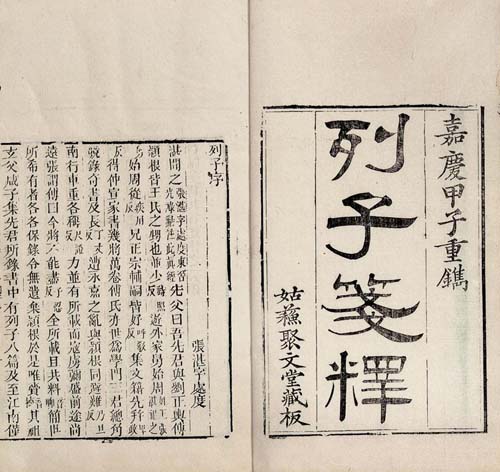 嘉慶甲子重鐫
列子箋釋
姑蘇聚文堂藏板
列子序
張湛字處度
湛聞之張湛字處度東晉光祿勳注此真經先父曰吾先君與劉正輿傅
穎根皆王氏之甥也並少反遊外家舅始周
始周從兄正宗輔嗣皆好反集文籍先并
得仲宣家書幾將萬卷傅氏亦世為學門三君總角
競錄奇書及長反遭永嘉之亂與穎根同避難反
南行車重各稱反力並有所載而寇虜彌盛前途尚
遠張謂傅曰今將不能盡反全所載且共料簡世
所希有者各各保錄令無遺棄穎根於是唯賷其祖
玄父咸子集先君所錄書中有列子八篇及至江南僅